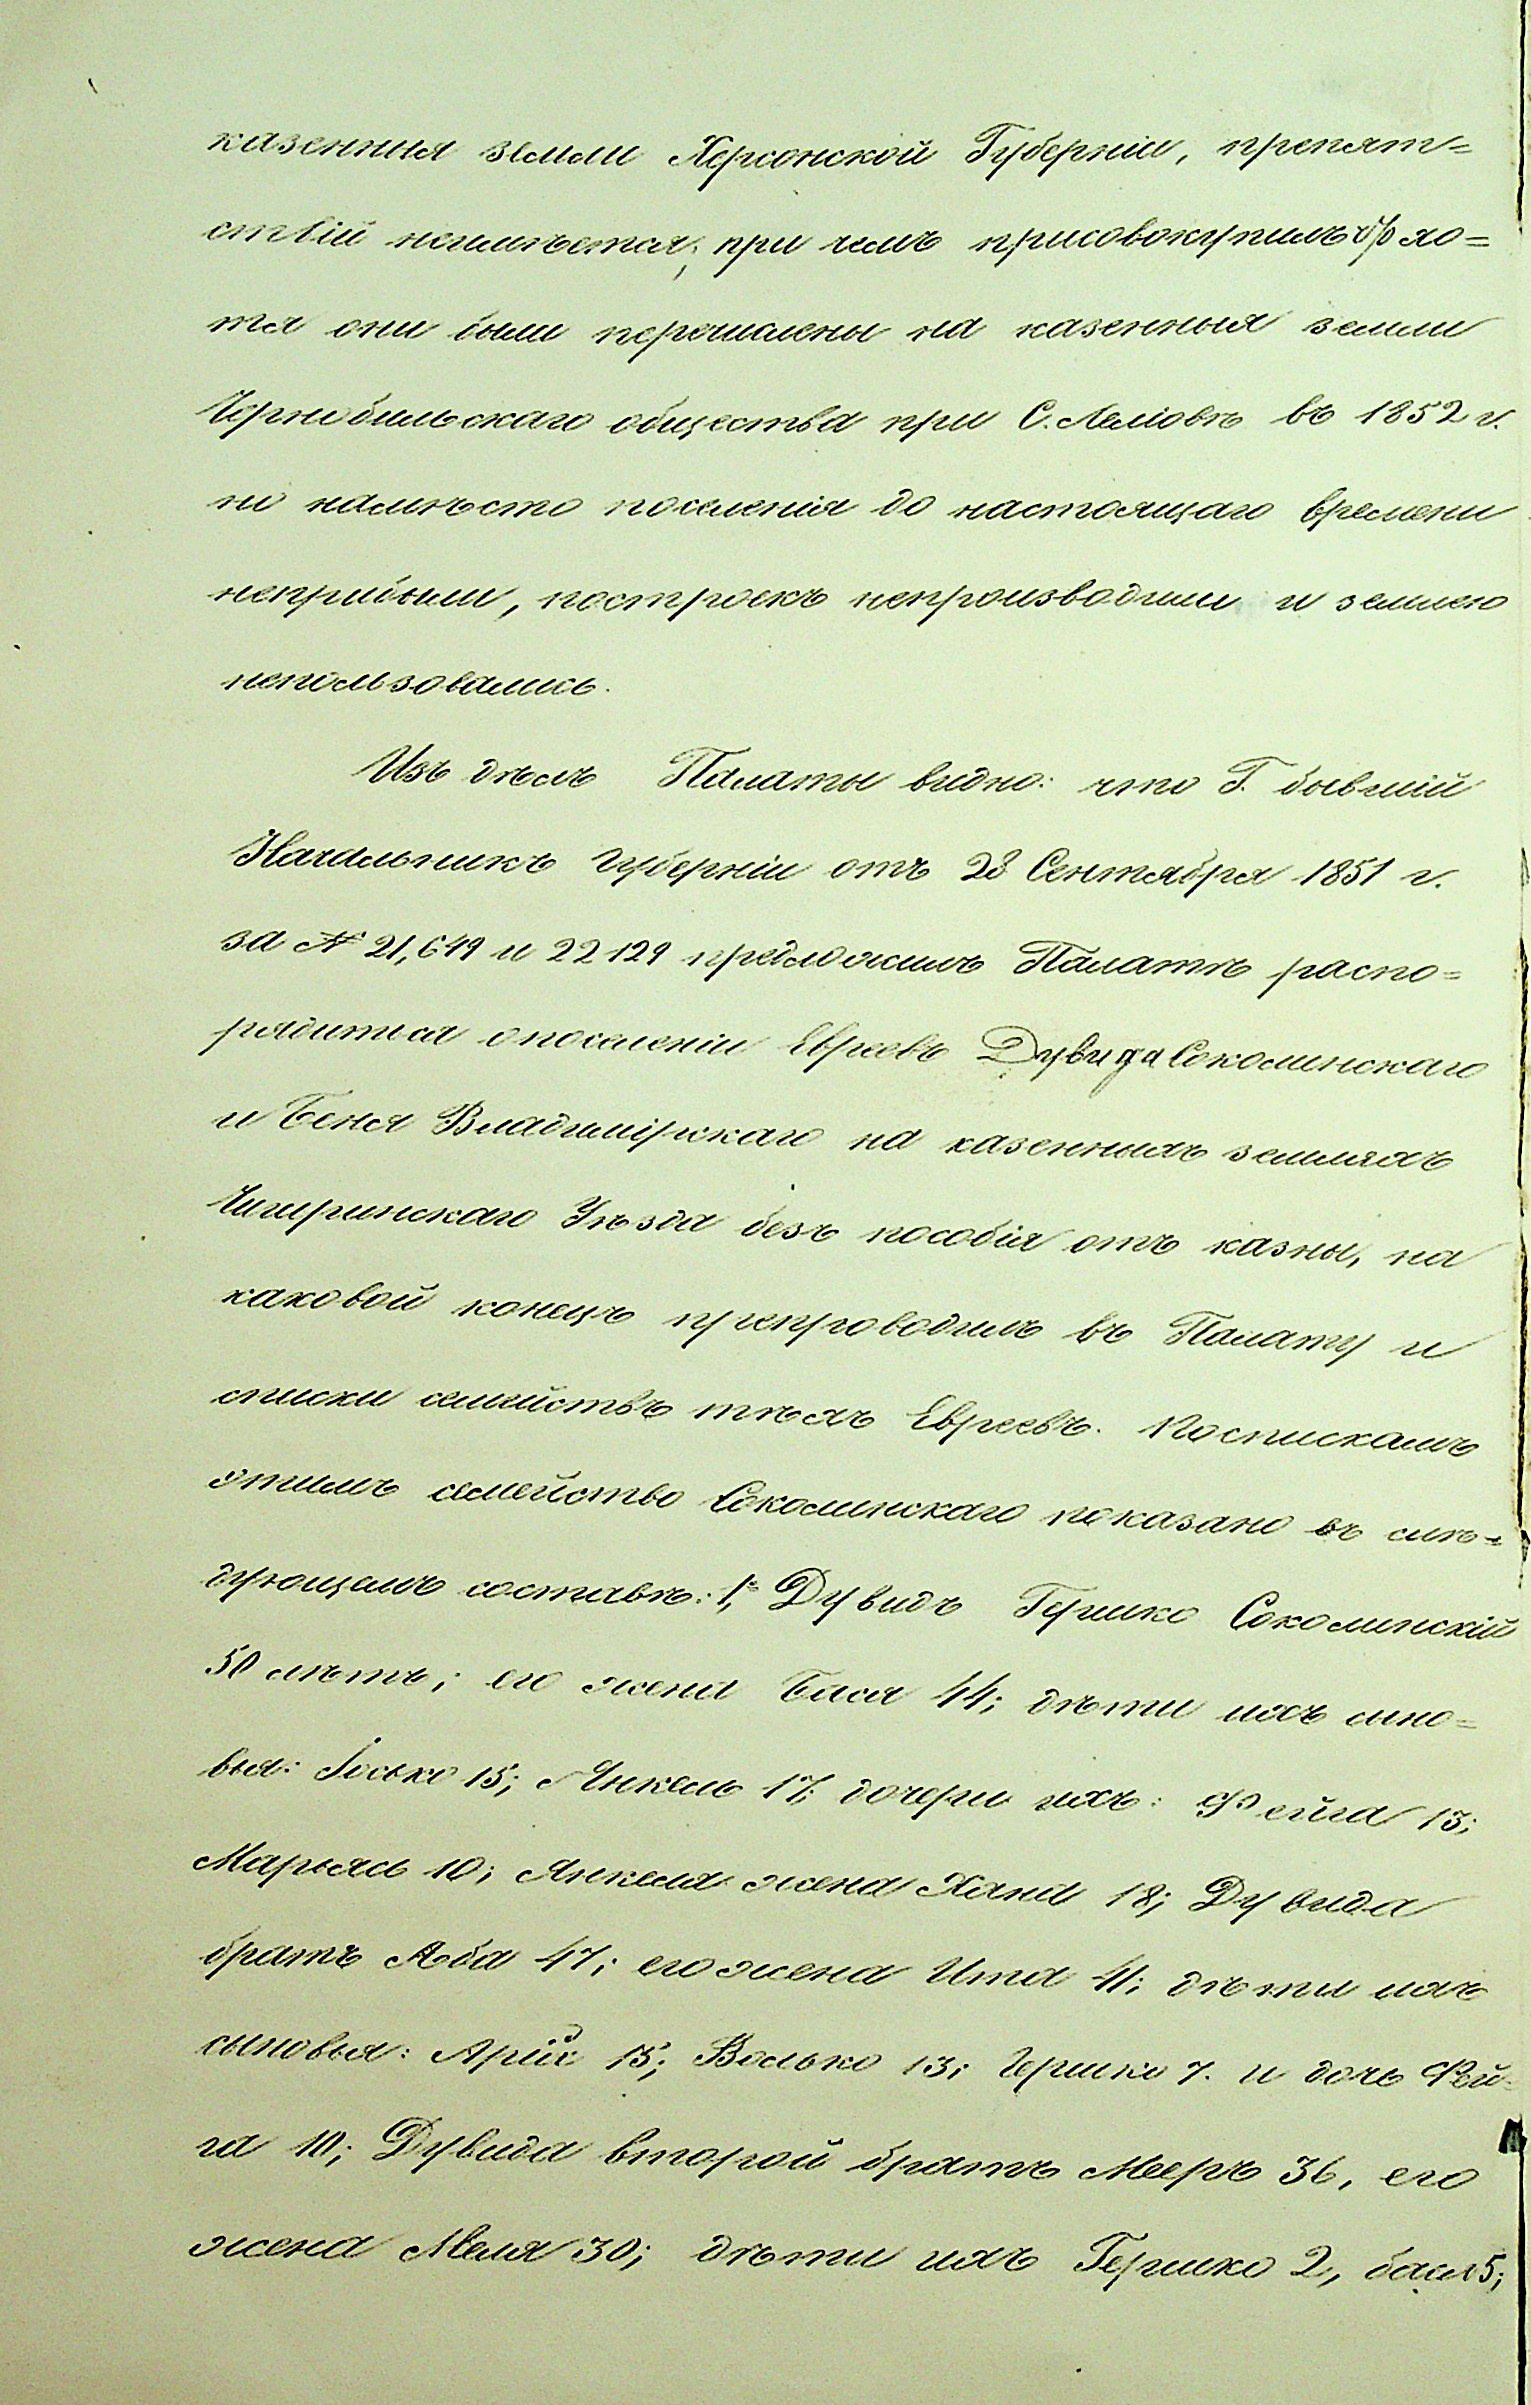 казенныя земли Херсонской Губерніи, препят=
ствій неимѣется; при чемъ присовокупилъ что хо=
тя они были перечислены на казенныя земли
Чернобыльскаго общества при С. Лелiовѣ въ 1852 г.
но намѣсто поселенія до настоящаго времени
неприбыли, построекъ непроизводили и землею
непользовались.
Изъ дѣлъ Палаты видно: что Г. бывшій
Начальникъ Губерніи отъ 28 Сентября 1851 г.
за № 21,649 и 22129 предложилъ Палатѣ распо=
рядиться опоселеніи Евреевъ Дувида Соколинскаго
и Беня Владимірскаго на казенныхъ земляхъ
Чигиринскаго Уѣзда безъ пособія отъ казны, на
каковой конецъ препроводилъ въ Палату и
списки семействъ тѣхъ Евреевъ. Поспискамъ
этимъ семейство Соколинскаго показано въ слѣ=
дующемъ составѣ: 1, Дувидъ Гершко Соколинскій
50 лѣтъ; его жена Бася 44; дѣти ихъ сыно=
вья: Іосько 15; Янкель 17; дочери ихъ: Фейга 13;
Марьясь 10; Янкеля жена Хана 18; Дувида
братъ Аба 47; его жена Ита 41; дѣти ихъ
сыновья: Арій 15; Волько 13; Гершко 7. и дочь Фей=
га 10; Дувида второй братъ Мееръ 36, его
жена Меля 30; дѣти ихъ Гершко 2, бася 5;